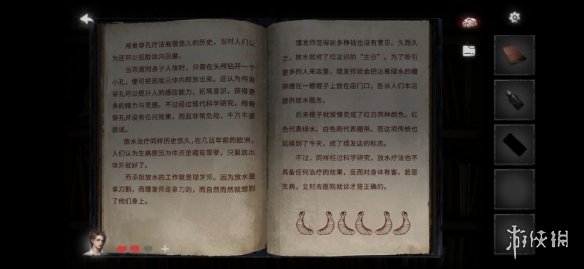 颅骨穿孔疗法有很悠久的历史，当时人们认
为还可以驱散体内恶魔。
当恶魔附身于人体时，只需在头颅钻开一个
小孔，便可将恶魔从体内释放出来。还认为颅骨
穿孔可以提升人的感应能力，拓宽意识，获得更
多的精力与灵感。不过经过现代科学研究，颅骨
穿孔并没有任何效果，而且非常危险，千万不能
尝试。
放水治疗同样历史悠久，在几百年前的欧洲，
人们认为生病是因为体液里藏有罪孽，只要放出
体外就好了。
而承担放水的工作就是理发师。因为放水是
拿刀割，而理发师是拿刀的，而自然而然就想到
了他们身上。
理发师觉得砥多挣钱也没有意见。久而久
之，放水就成了理发师的“主业”。为了吸引
更多的人来店里，理发师就会把沾着绿水的绷
带缠在一根棍子上放在店门口，告诉人们本店
提供放水服务。
后来棍子就慢慢变成了红白两种颜色。红
色代表绿水，白色则代表绷带。而这项传统也
延续到了今天，成了理发店的标志。
不过，同样经过科学研究，放水疗法也不
具备任何治疗的效果，反而对身体有害。若是
生病，立刻去医院就诊才是正确的。
游侠网